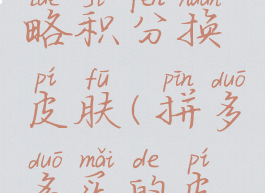 lüè jī fēn huàn
略积分换
pí fū pīn duō
皮肤(拼多
duō mǎi de pí
多买的皮